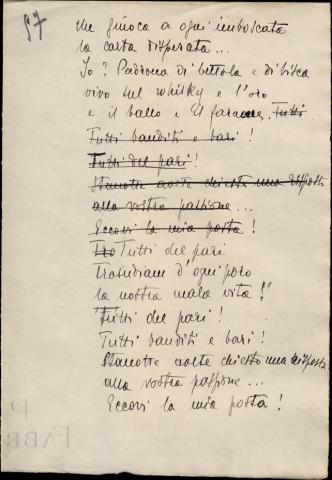 57
che giuoca a ogni imboscata
la carta disperata...
Io? Padrona di bettola e di bisca
vivo sul whisky e l'oro
e il ballo e il faraone. Tutti
Tutti banditi e bari!
Tutti del pari!
Stanotte avete chiesto una risposta
alla vostra passione...
Eccovi la mia posta!
Tutti del pari
Trasudiam d'ogni poro
la nostra mala vita!!
Tutti del pari!
Tutti banditi e bari!
Stanotte avete chiesto una risposta
alla vostra passione...
Eccovi la mia posta!
P
FABR